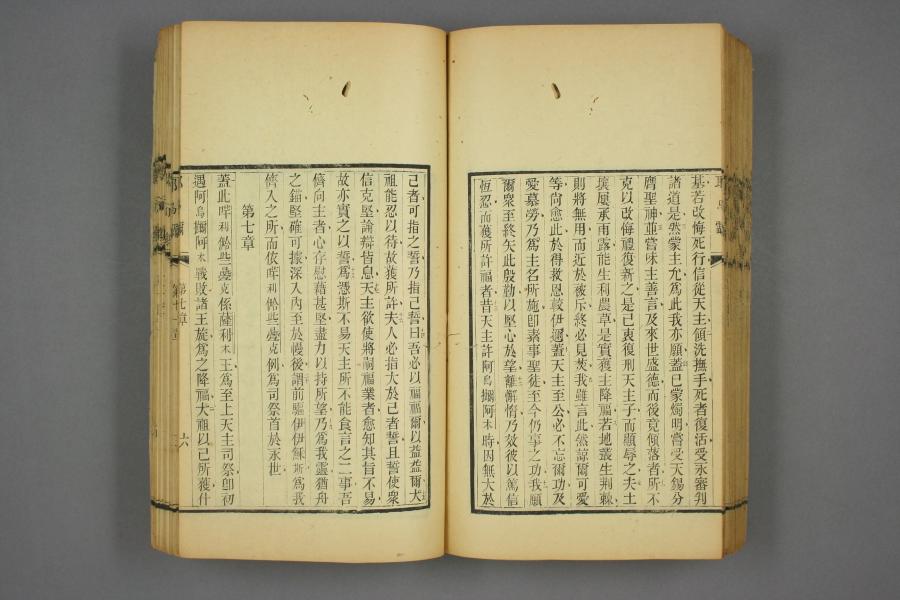 基若改悔死行信從天主領洗撫手死者復活受永審判
諸道是然蒙主允為此我亦願蓋已蒙燭明嘗受天錫分
膺聖神並嘗味主善言及來世盛德而後竟傾落者所不
克以改悔禮復新之是己衷復刑天主子而顯辱之夫土
壤屢承雨露能生利農草是實獲主降福若地叢生荊棘
則將無用而近於被斥終必見焚我雖言此然諒爾可愛
等尚愈此於得救恩較伊邇蓋天主至公必不忘爾功及
愛慕勞乃為主名所施即素事聖徒至今仍事之功我願
爾眾至終矢此殷勤以堅心於望離懈惰乃效彼以篤信
恆忍而獲所許福者昔天主許阿烏攔阿木時因無大於
己者可指之誓乃指己誓曰吾必以福福爾以益益爾大
祖能忍以待故獲所許夫人必指大於己者誓且誓使眾
信克堅論辯皆息天主欲使將嗣福業者愈知其旨不易
故亦實之以誓為憑斯不易天主所不能食言之二事吾
儕向主者心存慰藉甚堅盡力以持所望乃為我靈猶舟
之錨堅確可據深入內至於幔後謂前驅伊伊穌斯為我
儕入之所而依哶利佡些熋克例為司祭首於永世
第七章
蓋此哶利佡些熋克係薩利木王為至上天主司祭卽初
遇阿烏攔阿木戰敗諸王旋為之降福大祖以己所獲什
第七章
六